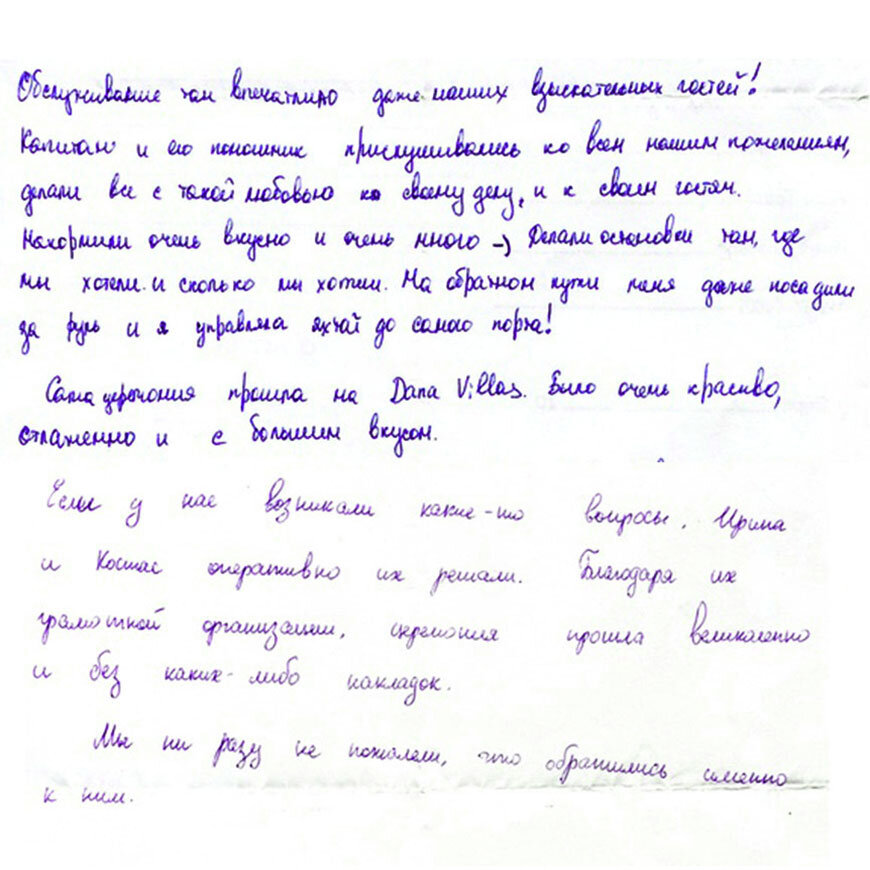 Обслуживание там впечатлило даже наших взыскательных гостей!
Капитан и его помошник прислушивались ко всем нашим пожеланиям,
делали все с такой любовью ко своему делу, и к своим гостям.
Накормили очень вкусно и очень много –) Делали остановки там, где
мы хотели и сколько мы хотим. На обратном пути меня даже посадили
за руль и я управляла яхтай до самого порта!
Сама церемония прошла на Dana Villas. Было очень красиво,
слаженно и с большим вкусом.
Если у нас возникали какие-то вопросы, Ирина
и Костас оперативно их решали. Благодаря их
грамотной организации, церемония прошла великолепно
и без каких-либо накладок.
Мы ни разу не пожалели, что обратились именно
к ним.